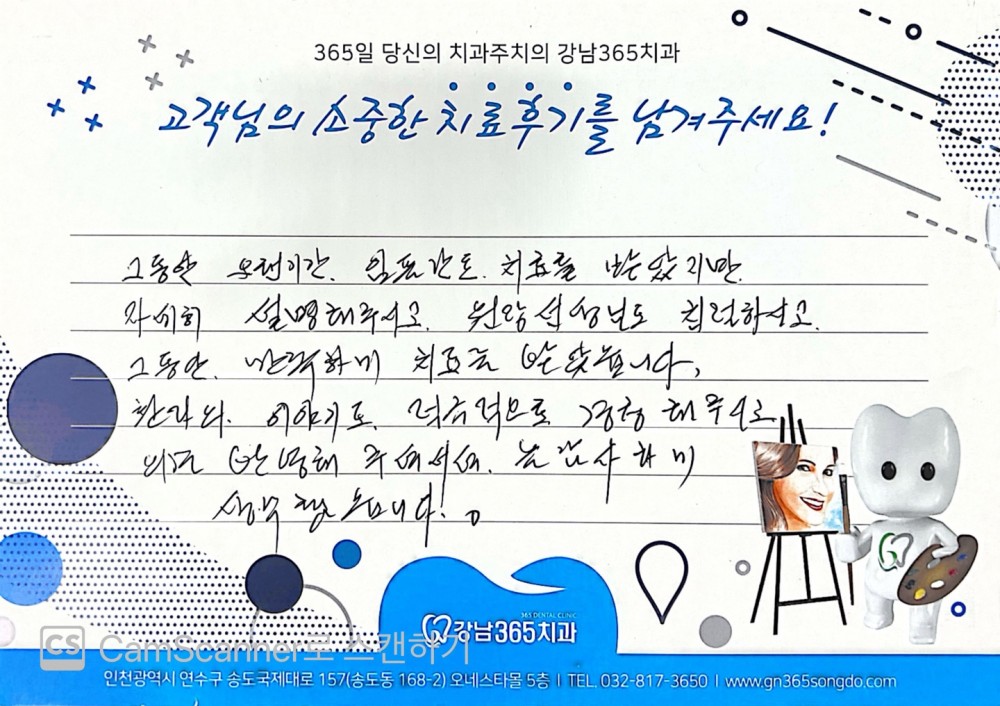 365일 당신의 치과주치의 강남365치과
고객님의 소중한 치료후기를 남겨주세요!
그동안 오랜기간. 임플란트. 치료를 받았지만.
자세히 설명해주시고. 원장선생님도 친절하시고.
그동안. 만족하며 치료를 받았습니다,
환자의. 이야기도. 적극적으로 경청해주시고
의견 반영해 주셔서. 늘 감사하며
365 DENTAL CLINIC
강남365치과
CS CamScanner로 스캔하기
인천광역시 연수구 송도국제대로 157(송도동 168-2) 오네스타몰 5층 I TEL. 032-817-3650 I www.gn365songdo.com